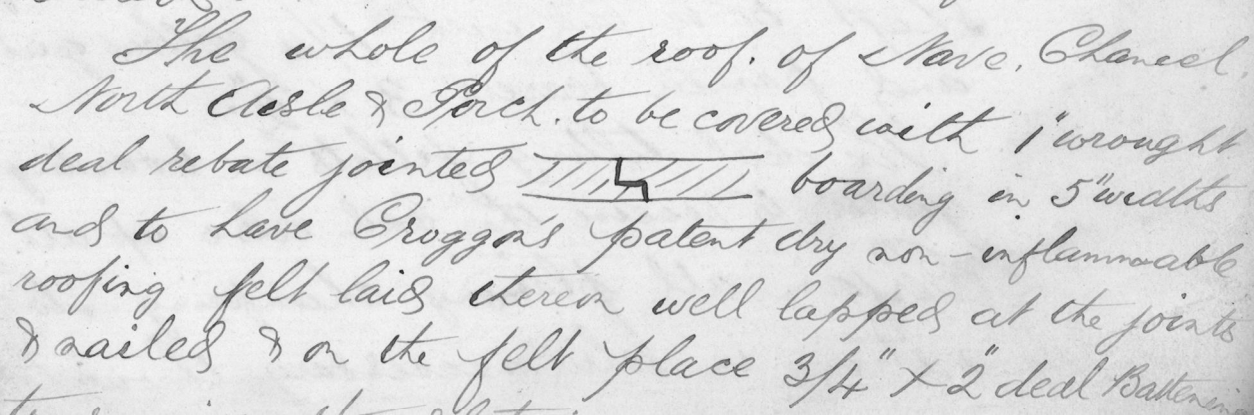 The whole of the roof. of Nave, Chancel,
North Aisle & Porch. to be covered with 1" wrought
deal rebate jointed boarding in 5" widths
and to have Croggon's patent dry non-inflammable
roofing felt laid thereon well lapped at the joints
& nailed & on the felt place 3/4" x 2" deal Battening